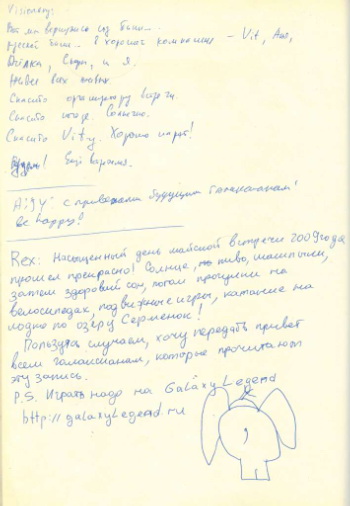 Visionary:
Вот мы вернулись из бани...
Русской бани. В хорошей компании - Vit,
и я.
Живее всех живых.
Спасибо организатору встречи.
Спасибо Солнечно.
Спасибо Vit'у. Хорошо парит!
Ещё вернёмся.
с приветами будущим галаксианам!
be happy!
Rex: Насыщенный день майской встречи 2009 года
прошел прекрасно! Солнце, пиво, шашлычки,
затем здоровый сон, потом прогулки на
велосипедах, подвижные игры, катание на
лодке по озеру Серменок!
Пользуясь случаем, хочу передать привет
всем галаксианам, которые прочитают
эту запись.
P.S. Играть надо на GalaxyLegend
http://galaxylegend.ru